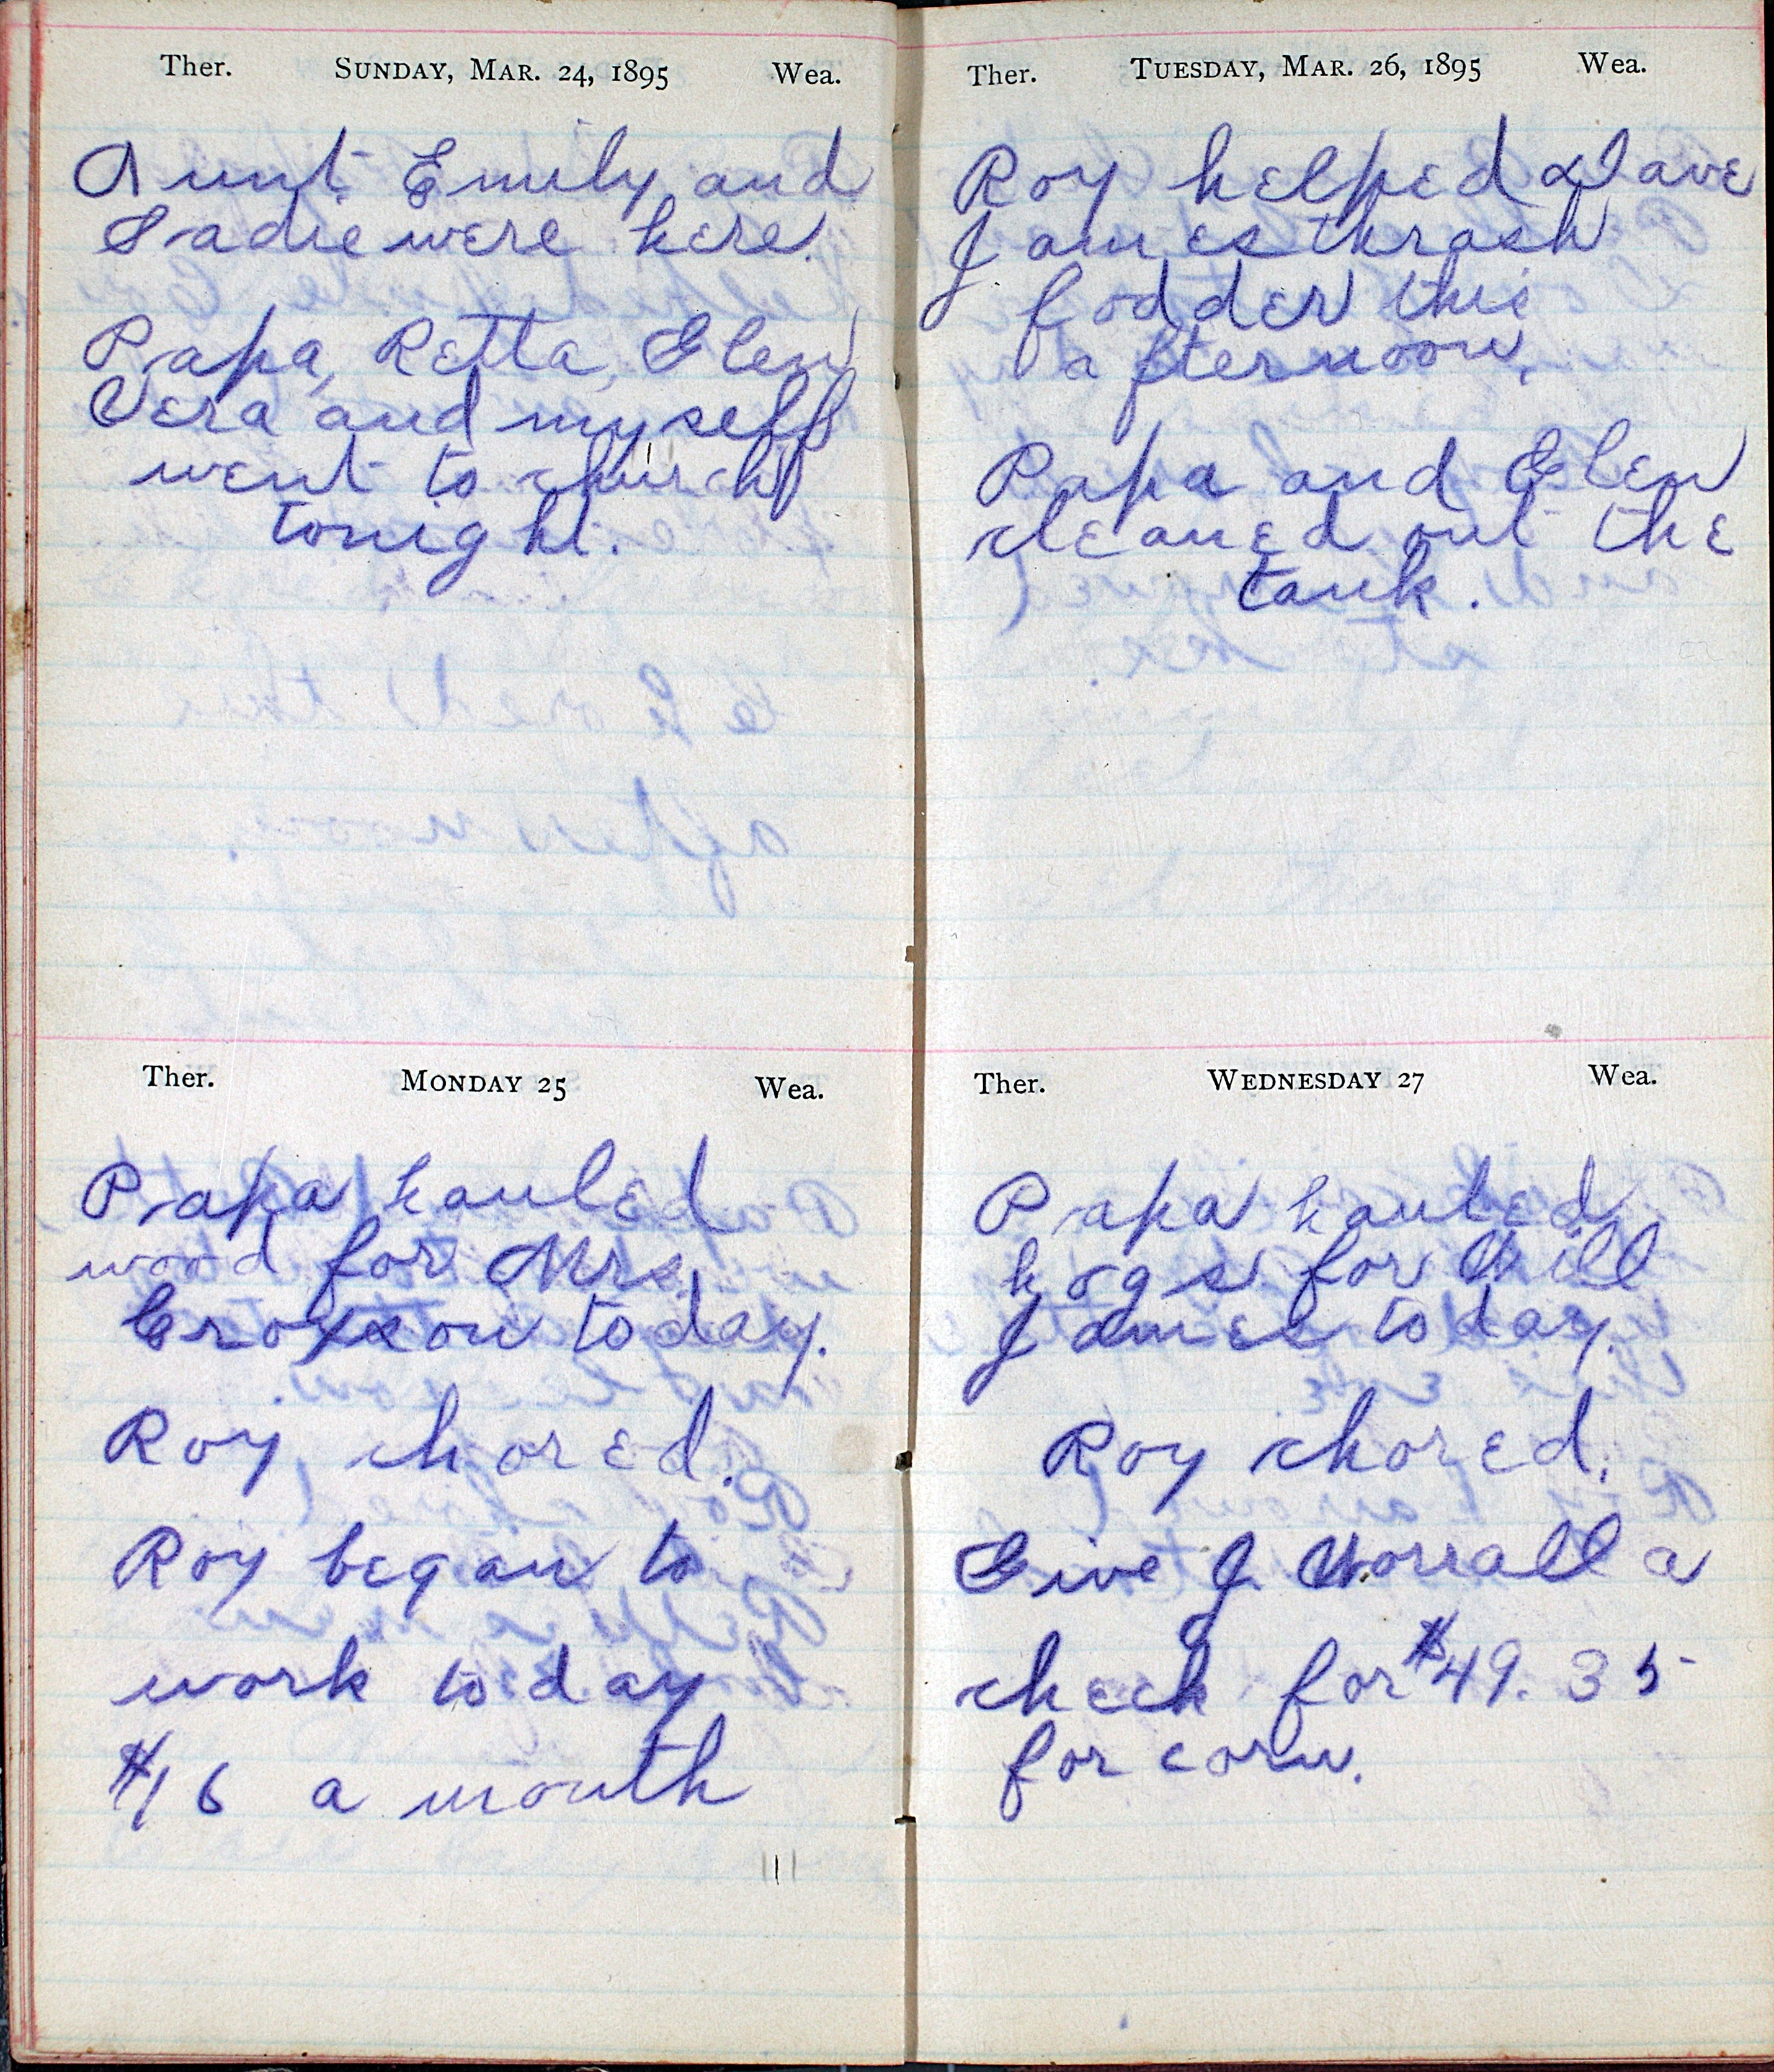 Ther. SUNDAY, MAR. 24, 1895 Wea.
Aunt Emily and
Sadie were here.
Papa, Retta, Glen
Vera and myself
went to church
tonight.
Ther. MONDAY 25 Wea.
Papa hauled
wood for Mrs.
Croxson today.
Roy chored.
Roy began to
work today
$16 a month
Ther. TUESDAY, MAR. 26, 1895 Wea.
Roy helped Dave
James thrash
fodder this
afternoon.
Papa and Glen
cleaned out the
tank.
Ther. WEDNESDAY 27 Wea.
Papa hauled
hogs for Will
James today.
Roy chored.
Give J. Worrall a
check for $49.35
for corn.